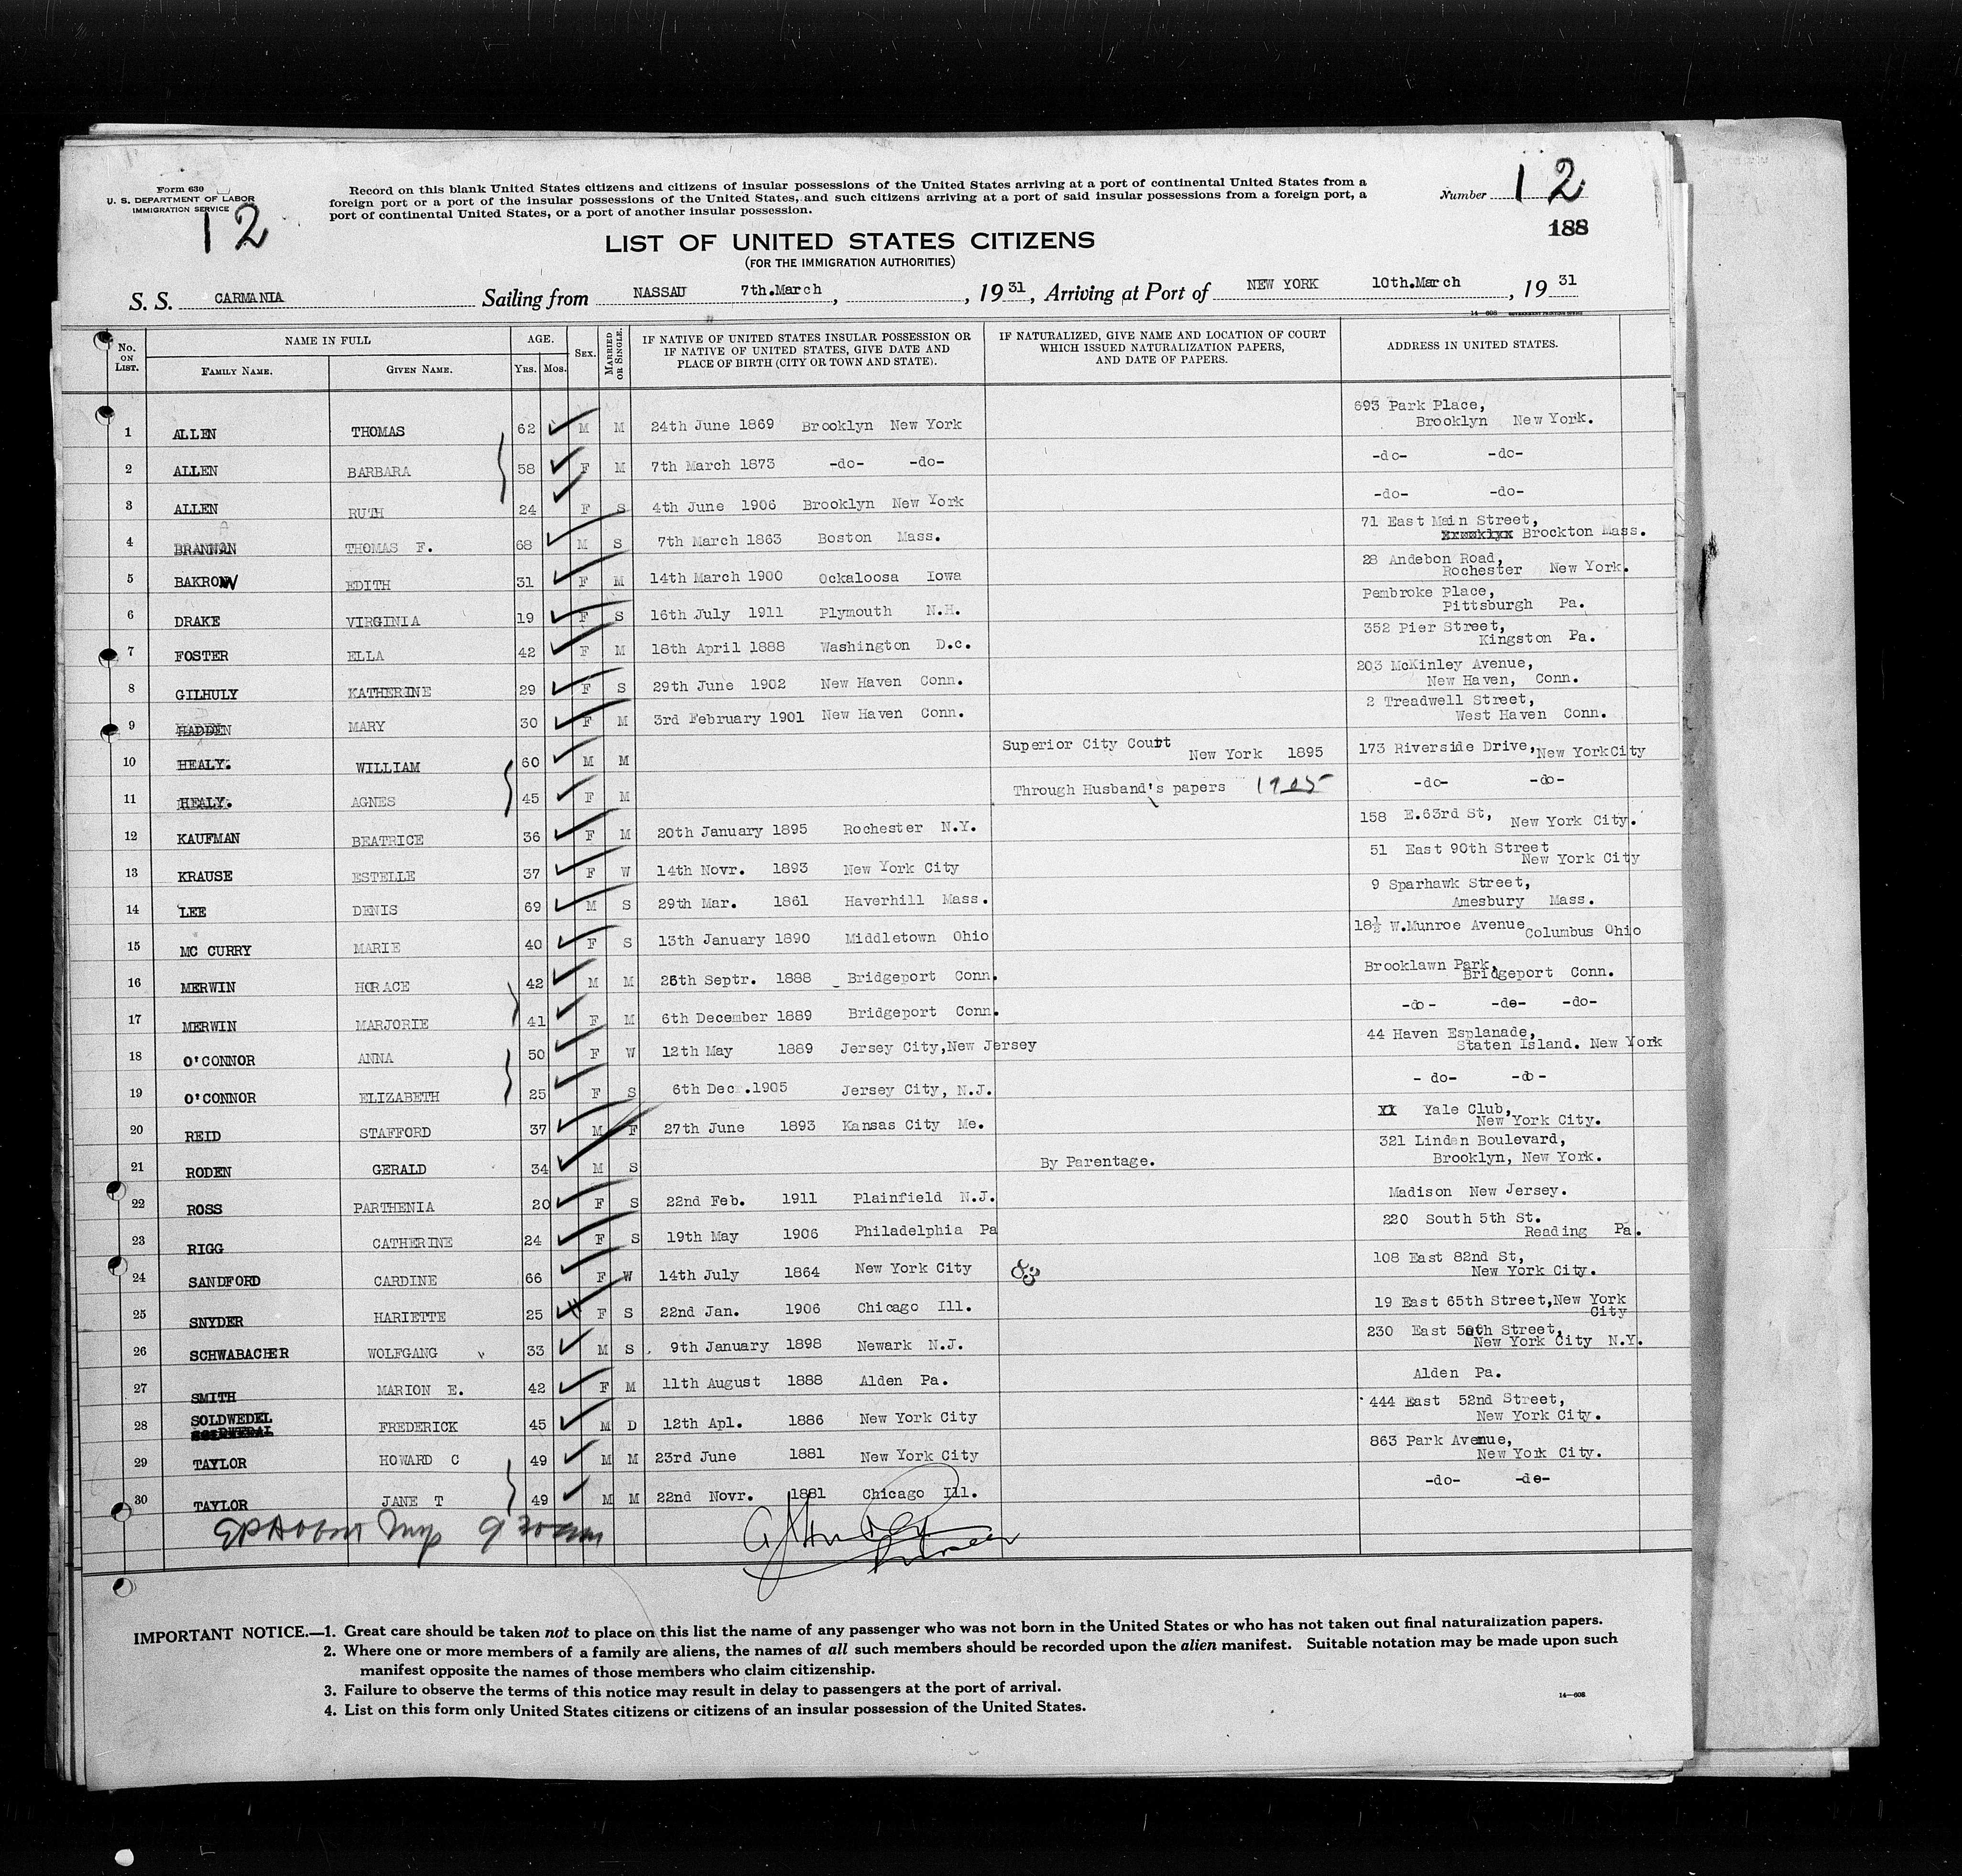 Form 630
U. S. DEPARTMENT OF LABOR
IMMIGRATION SERVICE
12
Record on this blank United States citizens and citizens of insular possessions of the United States arriving at a port of continental United States from a
foreign port or a port of the insular possessions of the United States, and such citizens arriving at a port of said insular possessions from a foreign port, a
port of continental United States, or a port of another insular possession.
Number 12
188
LIST OF UNITED STATES CITIZENS
(FOR THE IMMIGRATION AUTHORITIES)
S. S. CARMANIA Sailing from NASSAU 7th.March, , 1931, Arriving at Port of NEW YORK 10th.March, 1931
14—608 GOVERNMENT PRINTING OFFICE
No. ON LIST. NAME IN FULL FAMILY NAME. GIVEN NAME. AGE. YRS. MOS. SEX. MARRIED OR SINGLE. IF NATIVE OF UNITED STATES INSULAR POSSESSION OR IF NATIVE OF UNITED STATES, GIVE DATE AND PLACE OF BIRTH (CITY OR TOWN AND STATE). IF NATURALIZED, GIVE NAME AND LOCATION OF COURT WHICH ISSUED NATURALIZATION PAPERS, AND DATE OF PAPERS. ADDRESS IN UNITED STATES.
1 ALLEN THOMAS 62 M M 24th June 1869 Brooklyn New York 693 Park Place, Brooklyn New York.
2 ALLEN BARBARA 58 F M 7th March 1873 -do- -do- -do- -do-
3 ALLEN RUTH 24 F S 4th June 1906 Brooklyn New York -do- -do-
4 BRANNAN THOMAS F. 68 M S 7th March 1863 Boston Mass. 71 East Main Street, Brockton Mass.
5 BAKROW EDITH 31 F M 14th March 1900 Ockaloosa Iowa 28 Andebon Road, Rochester New York.
6 DRAKE VIRGINIA 19 F S 16th July 1911 Plymouth N.H. Pembroke Place, Pittsburgh Pa.
7 FOSTER ELLA 42 F M 18th April 1888 Washington D.c. 352 Pier Street, Kingston Pa.
8 GILHULY KATHERINE 29 F S 29th June 1902 New Haven Conn. 203 McKinley Avenue, New Haven, Conn.
9 HADDEN MARY 30 F M 3rd February 1901 New Haven Conn. 2 Treadwell Street, West Haven Conn.
10 HEALY. WILLIAM 60 M M Superior City Court New York 1895 173 Riverside Drive, New YorkCity
11 HEALY. AGNES 45 F M Through Husband's papers 1905 -do- -do-
12 KAUFMAN BEATRICE 36 F M 20th January 1895 Rochester N.Y. 158 E.63rd St, New York City.
13 KRAUSE ESTELLE 37 F W 14th Novr. 1893 New York City 51 East 90th Street New York City
14 LEE DENIS 69 M S 29th Mar. 1861 Haverhill Mass. 9 Sparhawk Street, Amesbury Mass.
15 MC CURRY MARIE 40 F S 13th January 1890 Middletown Ohio 18½ W.Munroe Avenue Columbus Ohio
16 MERWIN HORACE 42 M M 25th Septr. 1888 Bridgeport Conn. Brooklawn Park, Bridgeport Conn.
17 MERWIN MARJORIE 41 F M 6th December 1889 Bridgeport Conn. -do- -de- -do-
18 O'CONNOR ANNA 50 F W 12th May 1889 Jersey City,New Jersey 44 Haven Esplanade, Staten Island. New York
19 O'CONNOR ELIZABETH 25 F S 6th Dec .1905 Jersey City, N.J. - do- -do -
20 REID STAFFORD 37 M F 27th June 1893 Kansas City Me. Yale Club, New York City.
21 RODEN GERALD 34 M S By Parentage. 321 Linden Boulevard, Brooklyn, New York.
22 ROSS PARTHENIA 20 F S 22nd Feb. 1911 Plainfield N.J. Madison New Jersey.
23 RIGG CATHERINE 24 F S 19th May 1906 Philadelphia Pa 220 South 5th St. Reading Pa.
24 SANDFORD CARDINE 66 F W 14th July 1864 New York City 108 East 82nd St, New York City.
25 SNYDER HARIETTE 25 F S 22nd Jan. 1906 Chicago Ill. 19 East 65th Street,New York City
26 SCHWABACHER WOLFGANG 33 M S 9th January 1898 Newark N.J. 230 East 50th Street, New York City N.Y.
27 SMITH MARION E. 42 F M 11th August 1888 Alden Pa. Alden Pa.
28 SOLDWEDEL FREDERICK 45 M D 12th Apl. 1886 New York City 444 East 52nd Street, New York City.
29 TAYLOR HOWARD C 49 M M 23rd June 1881 New York City 863 Park Avenue, New York City.
30 TAYLOR JANE T 49 M M 22nd Novr. 1881 Chicago Ill. -do- -de-
IMPORTANT NOTICE.—1. Great care should be taken not to place on this list the name of any passenger who was not born in the United States or who has not taken out final naturalization papers.
2. Where one or more members of a family are aliens, the names of all such members should be recorded upon the alien manifest. Suitable notation may be made upon such
manifest opposite the names of those members who claim citizenship.
3. Failure to observe the terms of this notice may result in delay to passengers at the port of arrival.
4. List on this form only United States citizens or citizens of an insular possession of the United States.
14—608